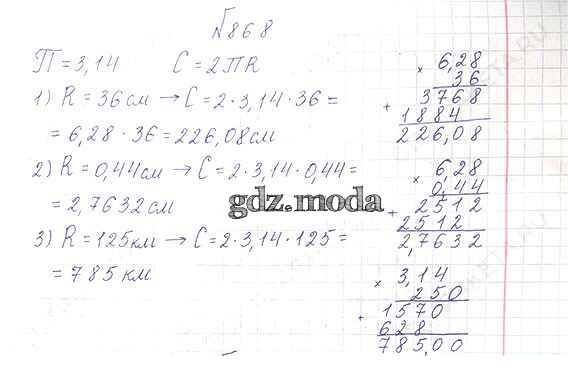 №868
П = 3,14 C = 2ПR
1) R = 36 см → C = 2·3,14·36 =
= 6,28·36 = 226,08 см
2) R = 0,44 см → C = 2·3,14·0,44 =
= 2,7632 см
3) R = 125 км → C = 2·3,14·125 =
= 785 км
× 6,28
36
+ 3768
1884
226,08
× 6,28
0,44
+ 2512
2512
2,7632
× 3,14
250
+ 1570
628
785,00
gdz.moda